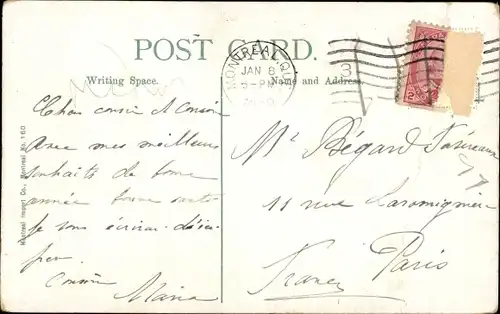 POST CARD.
Writing Space.
Name and Address
MONTREAL, QUE
JAN 8
3-PM
3
2
Montreal Import Co., Montreal No. 160
Chers cousin et Cousine
Avec mes meilleurs
souhaits de bonne
année bonne santé
je vous écrirai
Cousine
Maria
Mr Bégard
11 rue Laromiguière
Paris
France